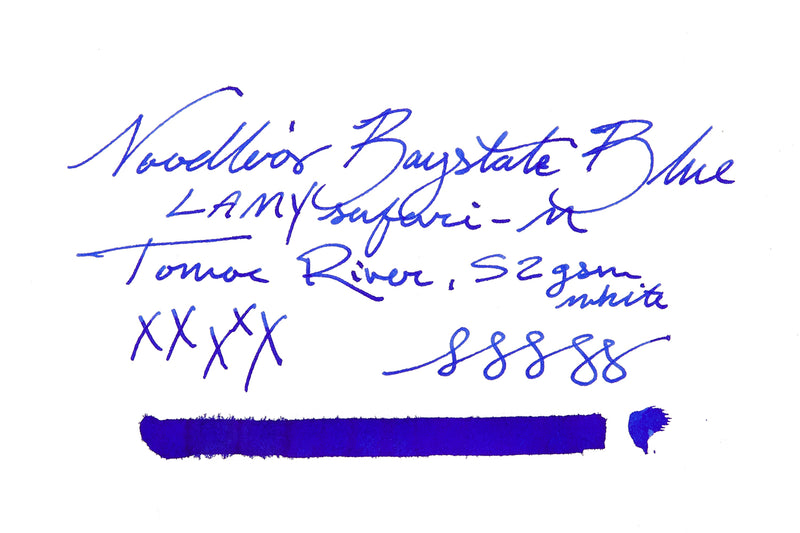 Noodler's Baystate Blue
LAMY safari - M
Tomoe River, 52gsm
white
XXXXX